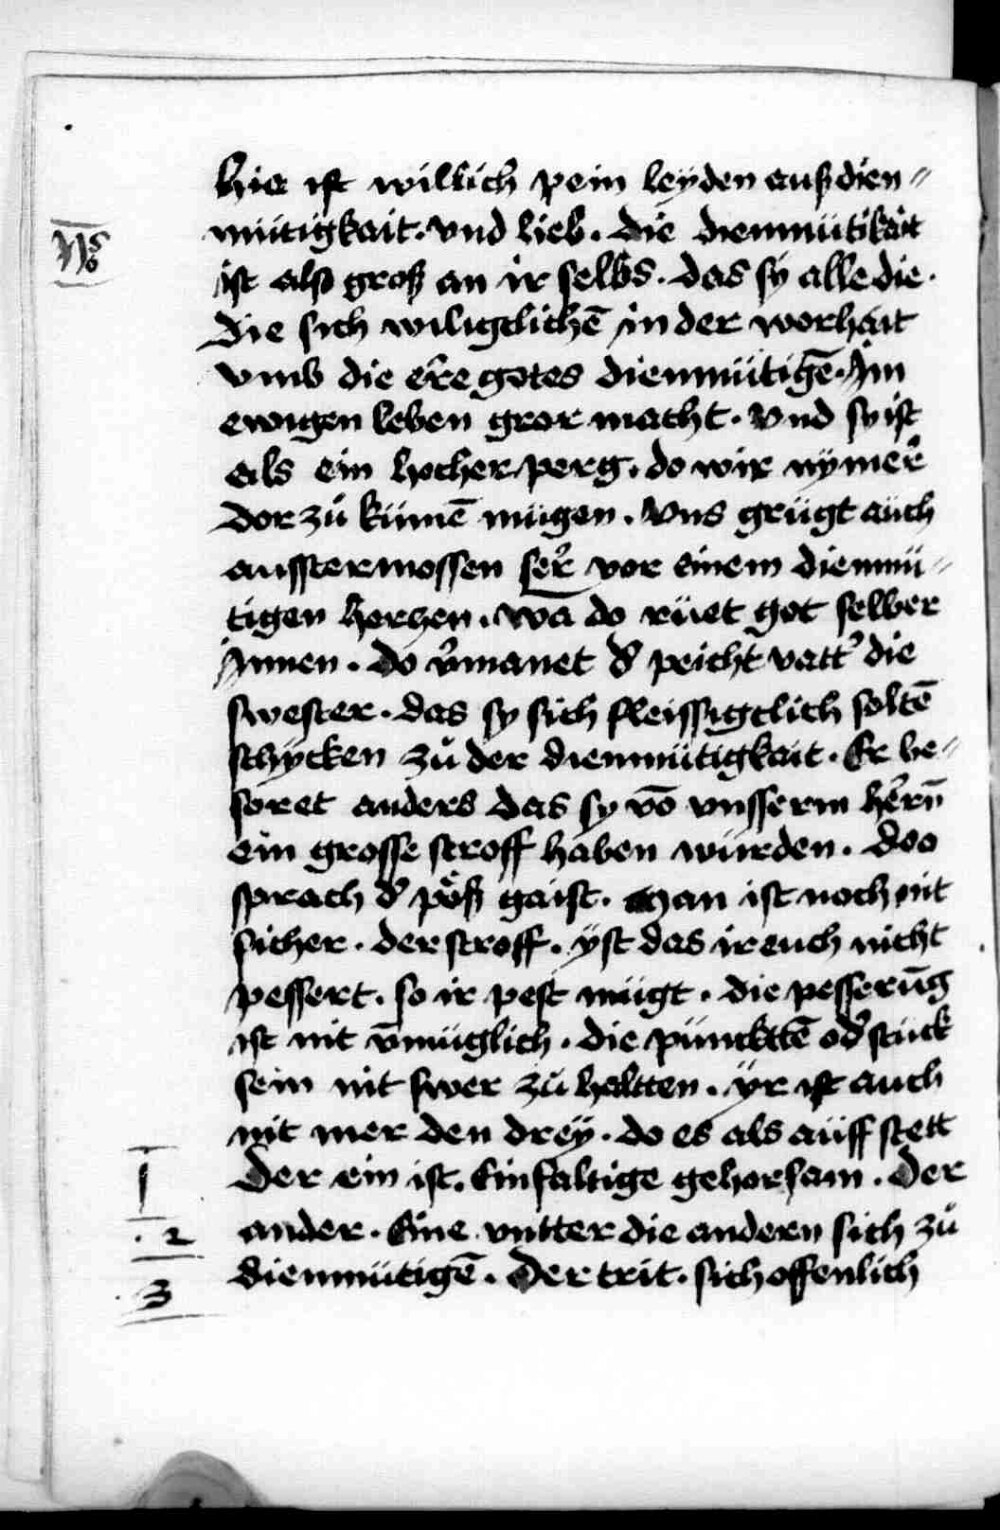 hie ist willich pein leyden auß dien〃
mütigkait. vnd lieb. die diemmütikait
No
ist also groß an ir selbs. das sy alle die.
die sich wiligclichē in der worhait
vmb die ere gotes diemmütigē. Im
ewigen leben gror macht. Vnd sy ist
als ein hocher perg. do wir nymer
dor zů kümē mügen. Vns grügt auch
ausstermossen ser vor einem diemmü〃
tigen herzen. wa do rüet got selber
Jnnen. do v̄manet d' peicht vatt' die
swester. das sy sich fleissigclich soltē
schycken zů der diemmütigkait. Er be〃
soret anders das sy vō vnsserm herñ
ein grosse stroff haben würden. doo
sprach d' pöß gaist. man ist noch nit
sicher. der stroff. yst das ir euch nicht
pessert. so ir pest mügt. die pesserūg
ist nit v̄müglich. die pünckttē od' stuck
sein nit swer zů haltten. yr ist auch
nit mer den drey. do es als auff stett
1 Der ein ist. Einfaltige gehorsam. Der
2 ander. Eine vntter die andern sich zů
3 diemmütigē. Der trit. sich offenlich